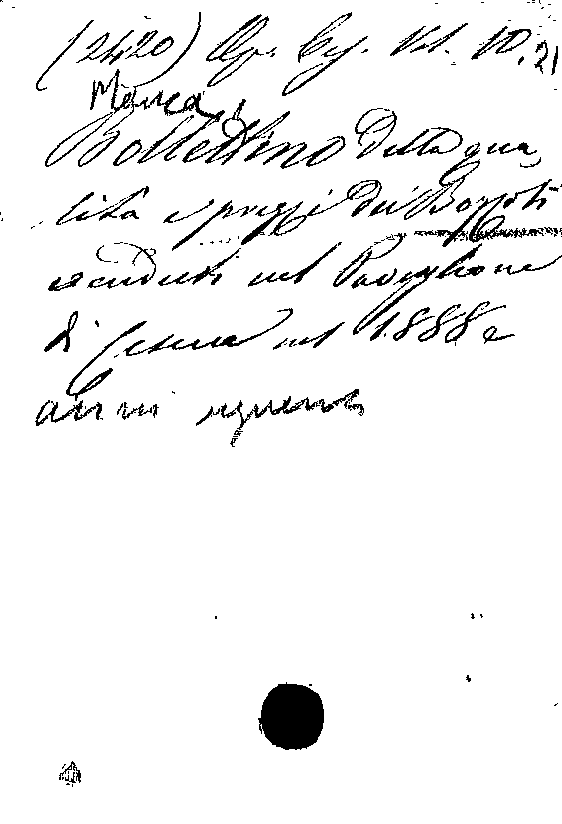 (2420) Op. Ces. Vol. 10. 21
Manca
Bollettino della qua
lità e prezzi dei Bozzoli
venduti nel Padiglione
di Cesena nel 1888 e
anni